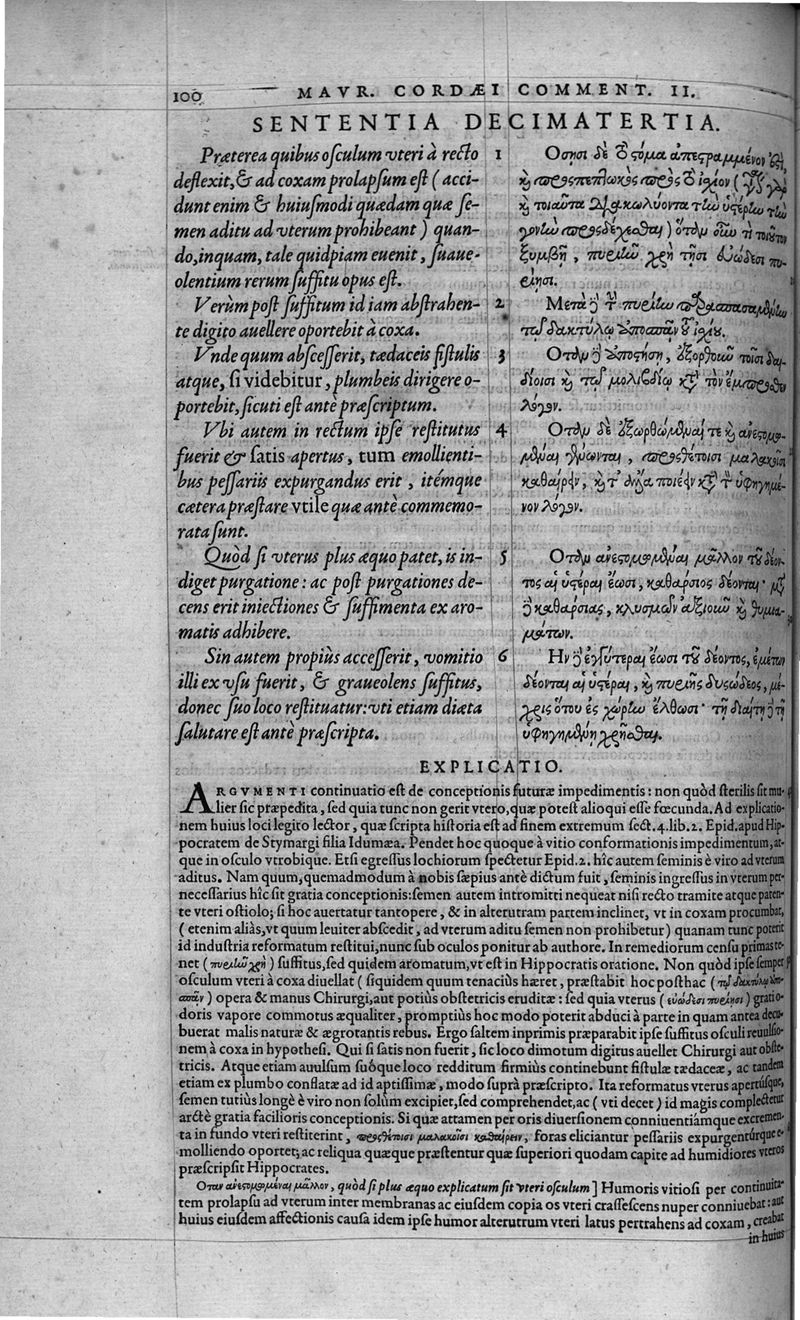 100 MAVR. CORDÆI COMMENT. II.
SENTENTIA DECIMATERTIA.
Præterea quibus oſculum vteri à recto
deflexit, & ad coxam prolapſum eſt ( acci-
dunt enim & huiuſmodi quædam quæ ſe-
men aditu ad vterum prohibeant ) quan-
do, inquam, tale quidpiam euenit, ſuaue-
olentium rerum ſuffitu opus eſt.
Verùm poſt ſuffitum id iam abſtrahen-
te digito auellere oportebit à coxa.
Vnde quum abſceſſerit, tædaceis fiſtulis
atque, ſi videbitur, plumbeis dirigere o-
portebit, ſicuti eſt antè præſcriptum.
Vbi autem in rectum ipſe reſtitutus
fuerit & ſatis apertus, tum emollienti-
bus peſſariis expurgandus erit, itémque
cætera præſtare vtile quæ antè commemo-
rata ſunt.
Quòd ſi vterus plus æquo patet, is in-
diget purgatione: ac poſt purgationes de-
cens erit iniectiones & ſuffimenta ex aro-
matis adhibere.
Sin autem propiùs acceſſerit, vomitio
illi ex vſu fuerit, & graueolens ſuffitus,
donec ſuo loco reſtituatur: vti etiam diæta
ſalutare eſt antè præſcripta.
1 Οσησι δὲ τὸ στόμα ἀπεστραμμένον
καὶ προσπεπλωκὸς πρὸς τὸ ἰσχίον
καὶ τοιαῦτα διακωλύοντα τὴν ὑστέρην τὴν
γονὴν προσδέχεσθαι) ὅταν οὖν τὶ τοιοῦτον
ξυμβῇ, πυριῆν χρὴ τῇσι εὐώδεσι πυ-
ρίησι.
2 Μετὰ δὲ τὴν πυρίην
τῷ δακτύλῳ ἀποσπᾷν τοῦ ἰσχίου.
3 Οταν δὲ ἀποστήσῃ, ἐξορθοῦν τοῖσι δαι-
δίοισι καὶ τῷ μολιβδίῳ κατὰ τὸν ἔμπροσθεν
λόγον.
4 Οταν δὲ ἐξωρθωμέναι τε καὶ ἀνεστομω-
μέναι γένωνται, προσθέτοισι μαλακοῖσι
καθαίρειν, καὶ τὰ ἄλλα ποιέειν κατὰ τὸν ὑφηγημέ-
νον λόγον.
5 Οταν ἀνεστομωμέναι μᾶλλον τοῦ δέον-
τος αἱ ὑστέραι ἔωσι, καθάρσιος δέονται· μετὰ
δὲ καθάρσιας, κλυσμῶν ἀξιοῦν καὶ θυμια-
μάτων.
6 Ην δὲ ἐγγύτεραι ἔωσι τοῦ δέοντος, ἐμέτων
δέονται αἱ ὑστέραι, καὶ πυρίης δυσώδεος, μέ-
χρις ὅτου ἐς χωρίον ἔλθωσι· τῇ διαίτῃ δὲ τῇ
ὑφηγημένῃ χρῆσθαι.
EXPLICATIO.
ARGVMENTI continuatio eſt de conceptionis futuræ impedimentis: non quòd ſterilis ſit mu-
lier ſic præpedita, ſed quia tunc non gerit vtero, quæ poteſt alioqui eſſe fœcunda. Ad explicatio-
nem huius loci legito lector, quæ ſcripta hiſtoria eſt ad finem extremum ſect. 4. lib. 2. Epid. apud Hip-
pocratem de Stymargi filia Idumæa. Pendet hoc quoque à vitio conformationis impedimentum, at-
que in oſculo vtrobique. Etſi egreſſus lochiorum ſpectetur Epid. 2. hîc autem ſeminis è viro ad vterum
aditus. Nam quum, quemadmodum à nobis ſæpius antè dictum fuit, ſeminis ingreſſus in vterum per-
neceſſarius hîc ſit gratia conceptionis: ſemen autem intromitti nequeat niſi recto tramite atque paten-
te vteri oſtiolo; ſi hoc auertatur tantopere, & in alterutram partem inclinet, vt in coxam procumbat,
( etenim aliàs, vt quum leuiter abſcedit, ad vterum aditu ſemen non prohibetur ) quanam tunc poterit
id induſtria reformatum reſtitui, nunc ſub oculos ponitur ab authore. In remediorum cenſu primas te-
net ( πυριῆν χρὴ ) ſuffitus, ſed quidem aromatum, vt eſt in Hippocratis oratione. Non quòd ipſe ſemper
oſculum vteri à coxa diuellat ( ſiquidem quum tenaciùs hæret, præſtabit hoc poſthac ( τῷ δακτύλῳ ἀπο-
σπᾷν ) opera & manus Chirurgi, aut potiùs obſtetricis eruditæ: ſed quia vterus ( εὐώδεσι πυρίησι ) gratio-
doris vapore commotus æqualiter, promptiùs hoc modo poterit abduci à parte in quam antea decu-
buerat malis naturæ & ægrotantis rebus. Ergo ſaltem inprimis præparabit ipſe ſuffitus oſculi reuulſio-
nem à coxa in hypotheſi. Qui ſi ſatis non fuerit, ſic loco dimotum digitus auellet Chirurgi aut obſte-
tricis. Atque etiam auulſum ſuôque loco redditum firmiùs continebunt fiſtulæ tædaceæ, ac tandem
etiam ex plumbo conflatæ ad id aptiſſimæ, modo ſuprà præſcripto. Ita reformatus vterus apertúſque,
ſemen tutiùs longè è viro non ſolùm excipiet, ſed comprehendet, ac ( vti decet ) id magis complectetur
arctè gratia facilioris conceptionis. Si quæ attamen per oris diuerſionem conniuentiámque excremen-
ta in fundo vteri reſtiterint, προσθέτοισι μαλακοῖσι καθαίρειν, foras eliciantur peſſariis expurgentúrque e-
molliendo oportet; ac reliqua quæque præſtentur quæ ſuperiori quodam capite ad humidiores vteros
præſcripſit Hippocrates.
Οταν ἀνεστομωμέναι μᾶλλον, quòd ſi plus æquo explicatum ſit vteri oſculum ] Humoris vitioſi per continuita-
tem prolapſu ad vterum inter membranas ac eiuſdem copia os vteri craſſeſcens nuper conniuebat: aut
huius eiuſdem affectionis cauſa idem ipſe humor alterutrum vteri latus pertrahens ad coxam, creabat
in huius